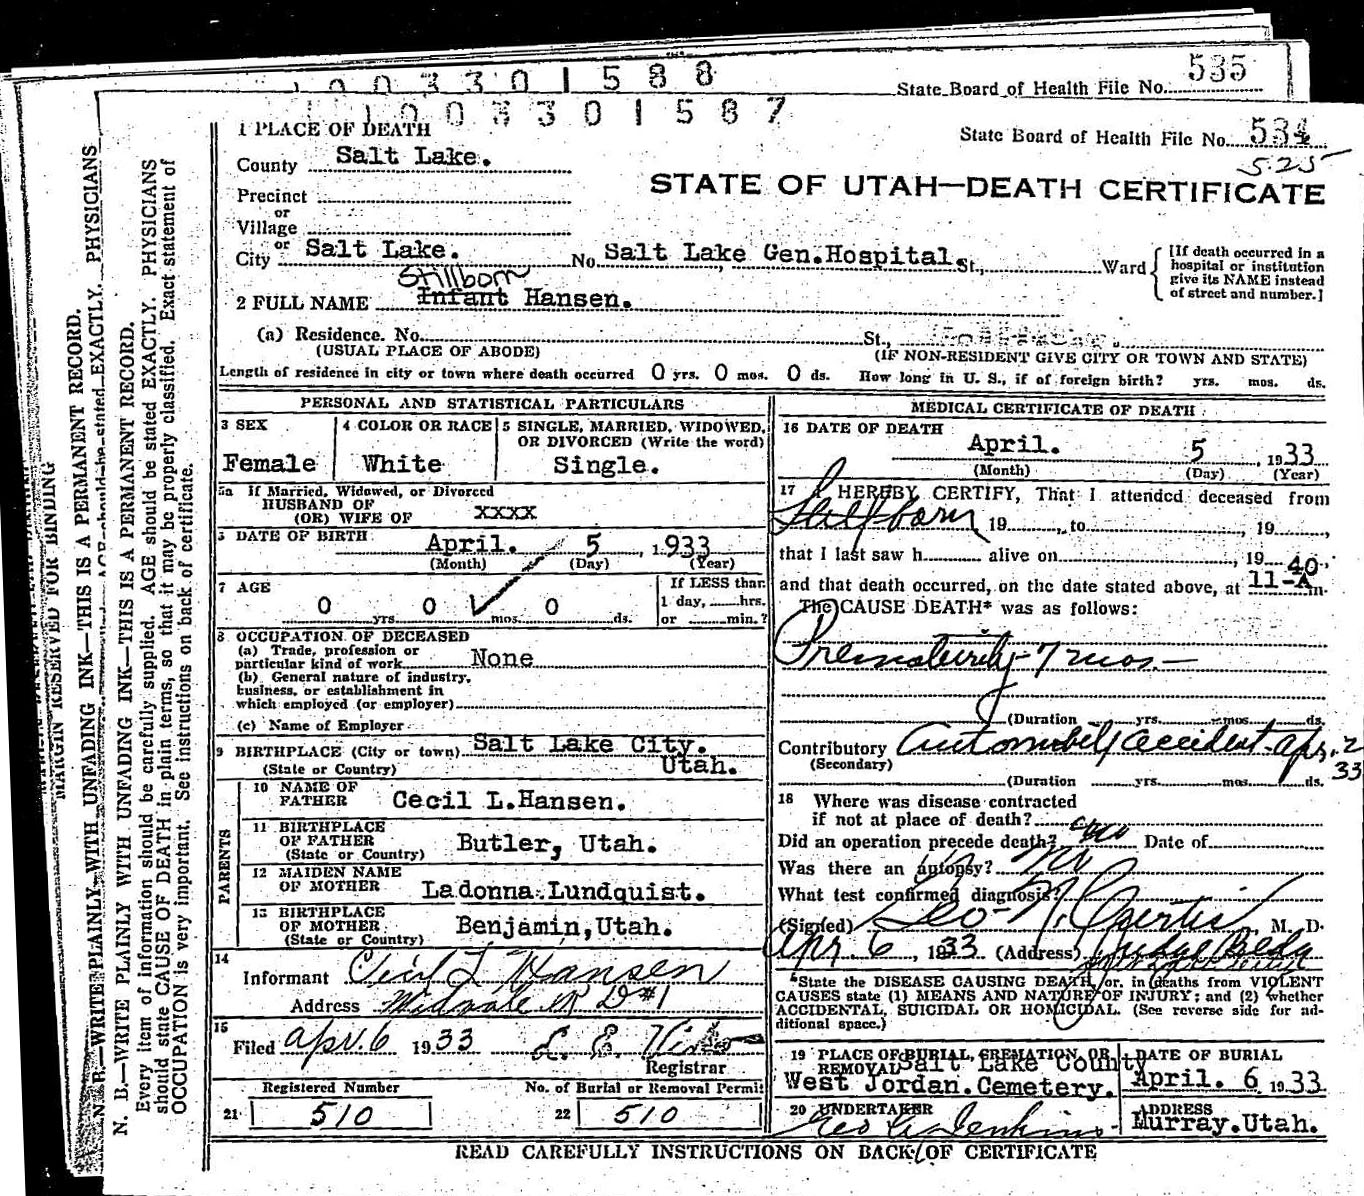 1003301588
State Board of Health File No. 535
1003301587
1 PLACE OF DEATH
State Board of Health File No. 534
525
County Salt Lake.
STATE OF UTAH—DEATH CERTIFICATE
Precinct
or
Village
or
City Salt Lake. No Salt Lake Gen.Hospital. St., Ward
[If death occurred in a
hospital or institution
give its NAME instead
of street and number.]
Stillborn
2 FULL NAME Infant Hansen.
(a) Residence. No. St.,
(USUAL PLACE OF ABODE) (IF NON-RESIDENT GIVE CITY OR TOWN AND STATE)
Length of residence in city or town where death occurred 0 yrs. 0 mos. 0 ds. How long in U. S., if of foreign birth? yrs. mos. ds.
PERSONAL AND STATISTICAL PARTICULARS
3 SEX
Female
4 COLOR OR RACE
White
5 SINGLE, MARRIED, WIDOWED,
OR DIVORCED (Write the word)
Single.
5a If Married, Widowed, or Divorced
HUSBAND OF
(OR) WIFE OF XXXX
DATE OF BIRTH April. 5, 1933
(Month) (Day) (Year)
7 AGE
0 yrs. 0 mos. 0 ds.
If LESS than
1 day, hrs.
or min.?
8 OCCUPATION OF DECEASED
(a) Trade, profession or
particular kind of work None
(b) General nature of industry,
business, or establishment in
which employed (or employer)
(c) Name of Employer
9 BIRTHPLACE (City or town) Salt Lake City.
(State or Country) Utah.
PARENTS
10 NAME OF
FATHER Cecil L.Hansen.
11 BIRTHPLACE
OF FATHER Butler, Utah.
(State or Country)
12 MAIDEN NAME
OF MOTHER Ladonna Lundquist.
13 BIRTHPLACE
OF MOTHER Benjamin,Utah.
(State or Country)
14
Informant Cecil L Hansen
Address Midvale R D #1
15
Filed Apr. 6 1933 Registrar
Registered Number No. of Burial or Removal Permit
21 510 22 510
MEDICAL CERTIFICATE OF DEATH
16 DATE OF DEATH
April. 5, 1933
(Month) (Day) (Year)
17 I HEREBY CERTIFY, That I attended deceased from
Stillborn 19, to, 19,
that I last saw h alive on, 19
and that death occurred, on the date stated above, at 11-40 A m.
The CAUSE DEATH* was as follows:
Prematurity - 7 mos -
(Duration yrs. mos. ds.
Contributory Automobile accident Apr. 2
(Secondary) 33
(Duration yrs. mos. ds.
18 Where was disease contracted
if not at place of death?
Did an operation precede death? no Date of
Was there an autopsy? No
What test confirmed diagnosis?
(Signed) Geo. N. Curtis, M. D.
Apr. 6, 1933 (Address) Judge Bldg
*State the DISEASE CAUSING DEATH, or, in deaths from VIOLENT
CAUSES state (1) MEANS AND NATURE OF INJURY; and (2) whether
ACCIDENTAL, SUICIDAL OR HOMICIDAL. (See reverse side for ad-
ditional space.)
19 PLACE OF BURIAL, CREMATION, OR
REMOVAL Salt Lake County
West Jordan.Cemetery.
DATE OF BURIAL
April. 6 1933
20 UNDERTAKER
Geo A Jenkins
ADDRESS
Murray.Utah.
READ CAREFULLY INSTRUCTIONS ON BACK OF CERTIFICATE
MARGIN RESERVED FOR BINDING
N. B.—WRITE PLAINLY WITH UNFADING INK—THIS IS A PERMANENT RECORD. PHYSICIANS
N. B.—WRITE PLAINLY WITH UNFADING INK—THIS IS A PERMANENT RECORD.
Every item of information should be carefully supplied. AGE should be stated EXACTLY. PHYSICIANS
should state CAUSE OF DEATH in plain terms, so that it may be properly classified. Exact statement of
OCCUPATION is very important. See instructions on back of certificate.